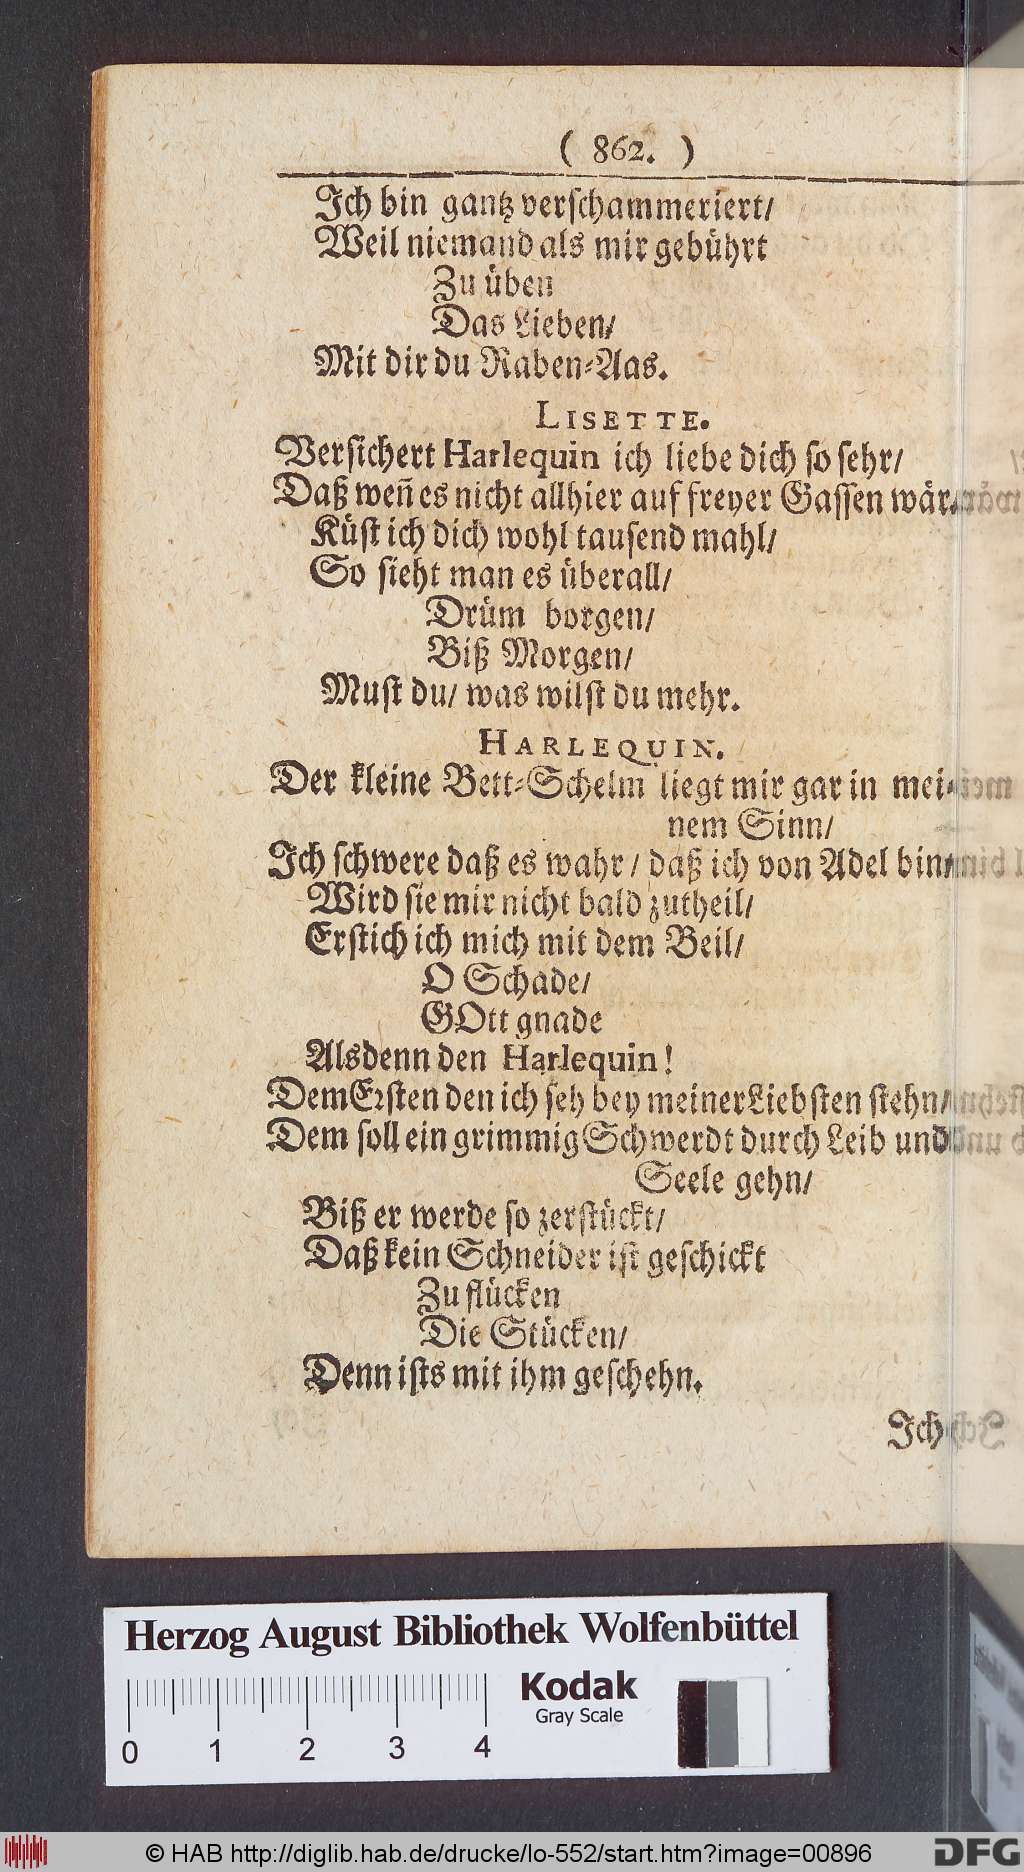 ( 862. )
Ich bin gantz verschammeriert/
Weil niemand als mir gebührt
Zu üben
Das Lieben/
Mit dir du Raben-Aas.
LISETTE.
Versichert Harlequin ich liebe dich so sehr/
Daß weñ es nicht allhier auf freyer Gassen wär/
Küst ich dich wohl tausend mahl/
So sieht man es überall/
Drüm borgen/
Biß Morgen/
Must du/ was wilst du mehr.
HARLEQUIN.
Der kleine Bett-Schelm liegt mir gar in mei-
nem Sinn/
Ich schwere daß es wahr/ daß ich von Adel bin/
Wird sie mir nicht bald zutheil/
Erstich ich mich mit dem Beil/
O Schade/
GOtt gnade
Alsdenn den Harlequin!
Dem Ersten den ich seh bey meiner Liebsten stehn/
Dem soll ein grimmig Schwerdt durch Leib und
Seele gehn/
Biß er werde so zerstückt/
Daß kein Schneider ist geschickt
Zu flücken
Die Stücken/
Denn ists mit ihm geschehn.
Ich
Herzog August Bibliothek Wolfenbüttel
Kodak
Gray Scale
0 1 2 3 4
© HAB http://diglib.hab.de/drucke/lo-552/start.htm?image=00896
DFG